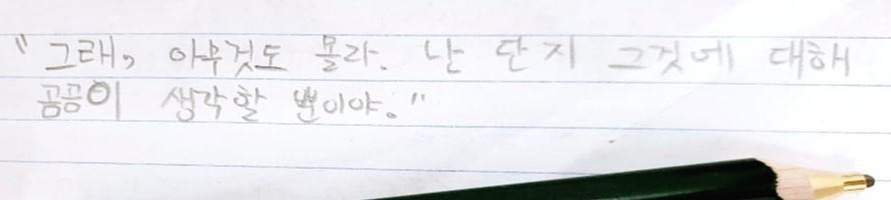 "그래, 아무것도 몰라. 난 단지 그것에 대해
곰곰이 생각할 뿐이야."